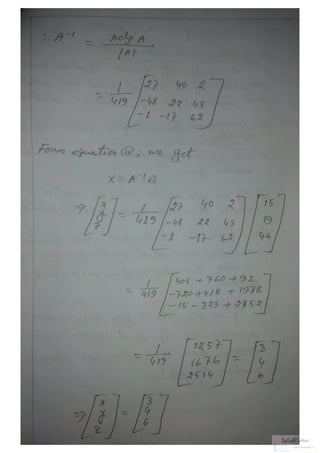 ∴ A⁻¹ = Adj A / |A|
= 1/419 [27 40 2
-48 22 43
-1 -17 62]
From equation (ii); we get
X = A⁻¹B
⇒ [x y z] = 1/419 [27 40 2
-48 22 43
-1 -17 62] [15 19 46]
= 1/419 [405 + 760 + 92
-720 + 418 + 1978
-15 - 323 + 2852]
= 1/419 [1257 1676 2514] = [3 4 6]
⇒ [x y z] = [3 4 6]